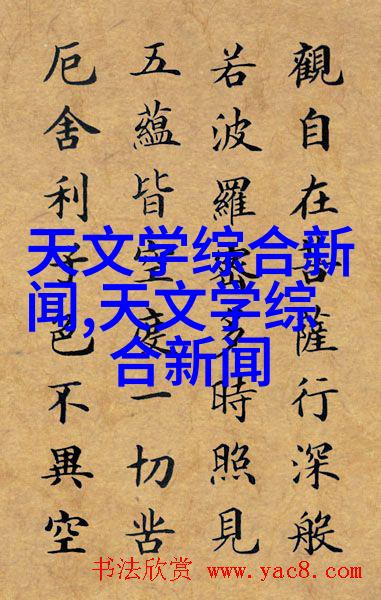 觀自在菩薩行深般
若波羅蜜多時照見
五蘊皆空度一切苦
厄舍利子色不異空
天文学综合新
闻,天文学综
合新闻
书法欣赏 www.yac8.com